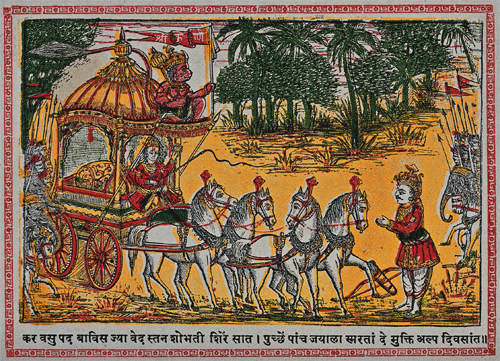 कर वसु पद बाविस ज्या वेद स्तन शोभती शिरें सात। पुच्छें पांच जयाला स्मरतां दे मुक्ति अल्प दिवसांत॥